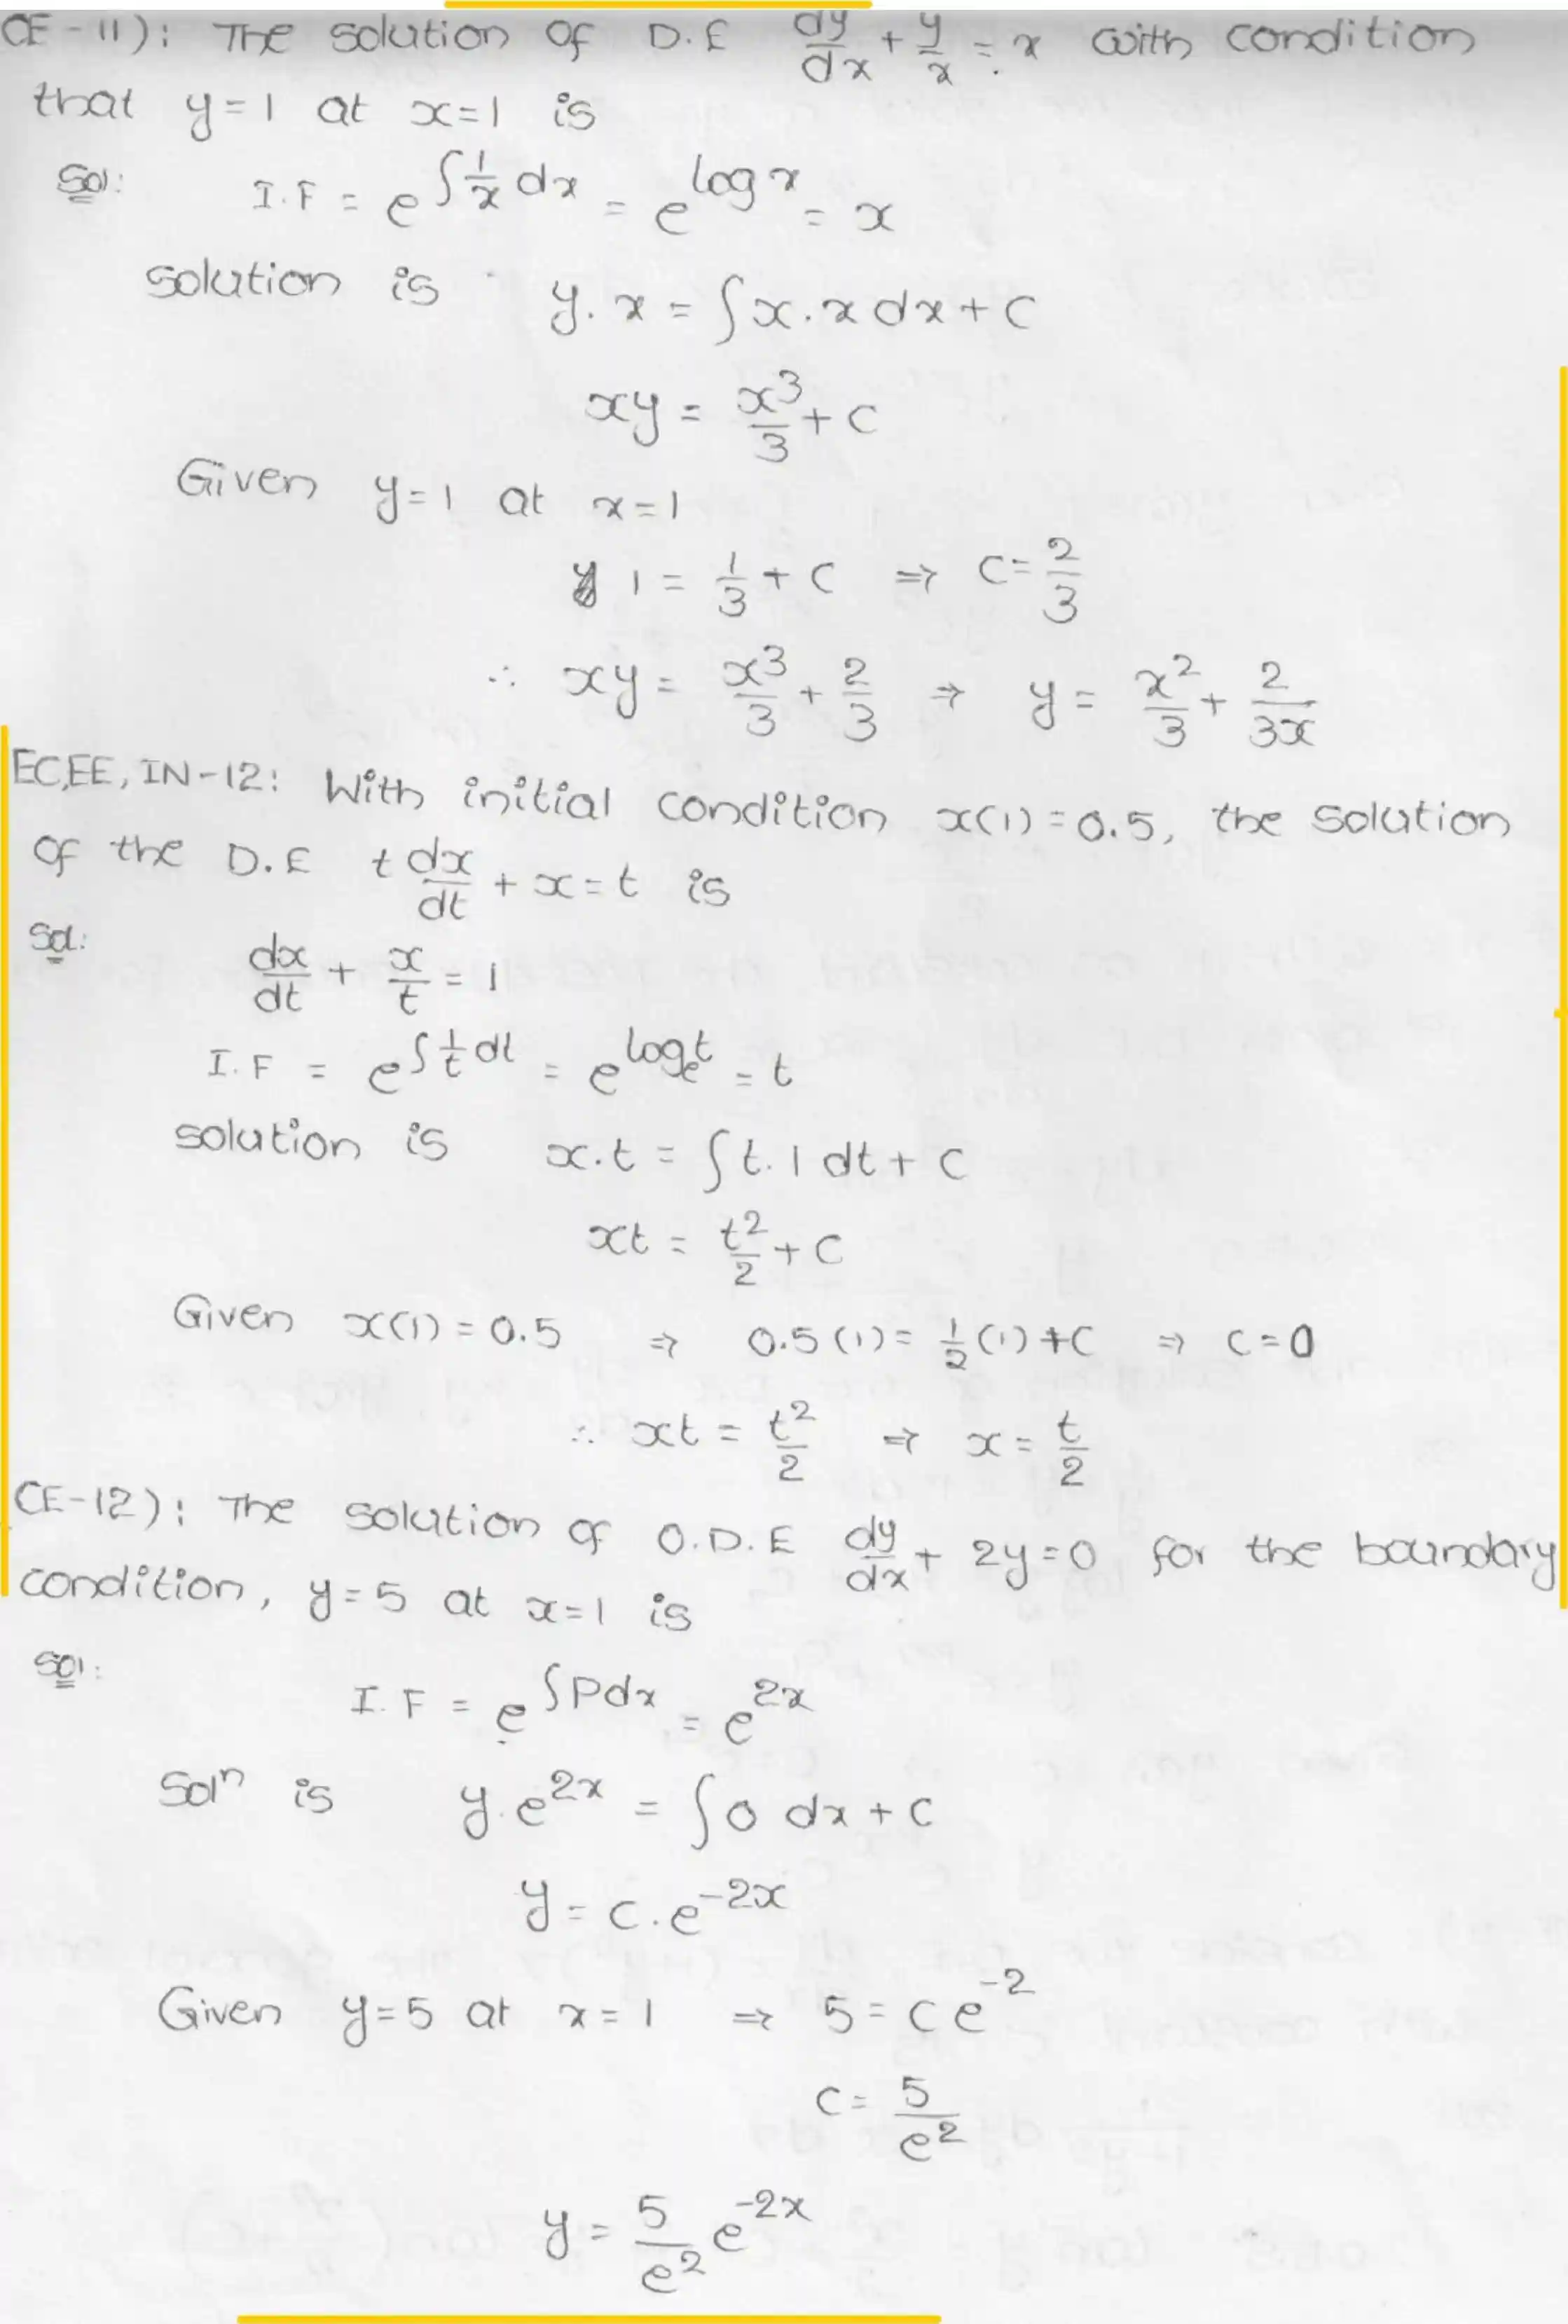 CE-11): The solution of D.E dy/dx + y/x = x with condition
that y=1 at x=1 is
Sol: I.F = e^∫1/x dx = e^log x = x
solution is y.x = ∫x.x dx + C
xy = x^3/3 + C
Given y=1 at x=1
1 = 1/3 + C ⇒ C = 2/3
∴ xy = x^3/3 + 2/3 ⇒ y = x^2/3 + 2/3x
EC,EE,IN-12: With initial condition x(1)=0.5, the solution
of the D.E t dx/dt + x = t is
Sol: dx/dt + x/t = 1
I.F = e^∫1/t dt = e^log_e t = t
solution is x.t = ∫t.1 dt + C
xt = t^2/2 + C
Given x(1)=0.5 ⇒ 0.5(1) = 1/2(1) + C ⇒ C=0
∴ xt = t^2/2 ⇒ x = t/2
CE-12): The solution of O.D.E dy/dx + 2y=0 for the boundary
condition, y=5 at x=1 is
Sol: I.F = e^∫Pdx = e^2x
Sol^n is y.e^2x = ∫0 dx + C
y = C.e^-2x
Given y=5 at x=1 ⇒ 5 = C e^-2
C = 5/e^2
y = 5/e^2 e^-2x